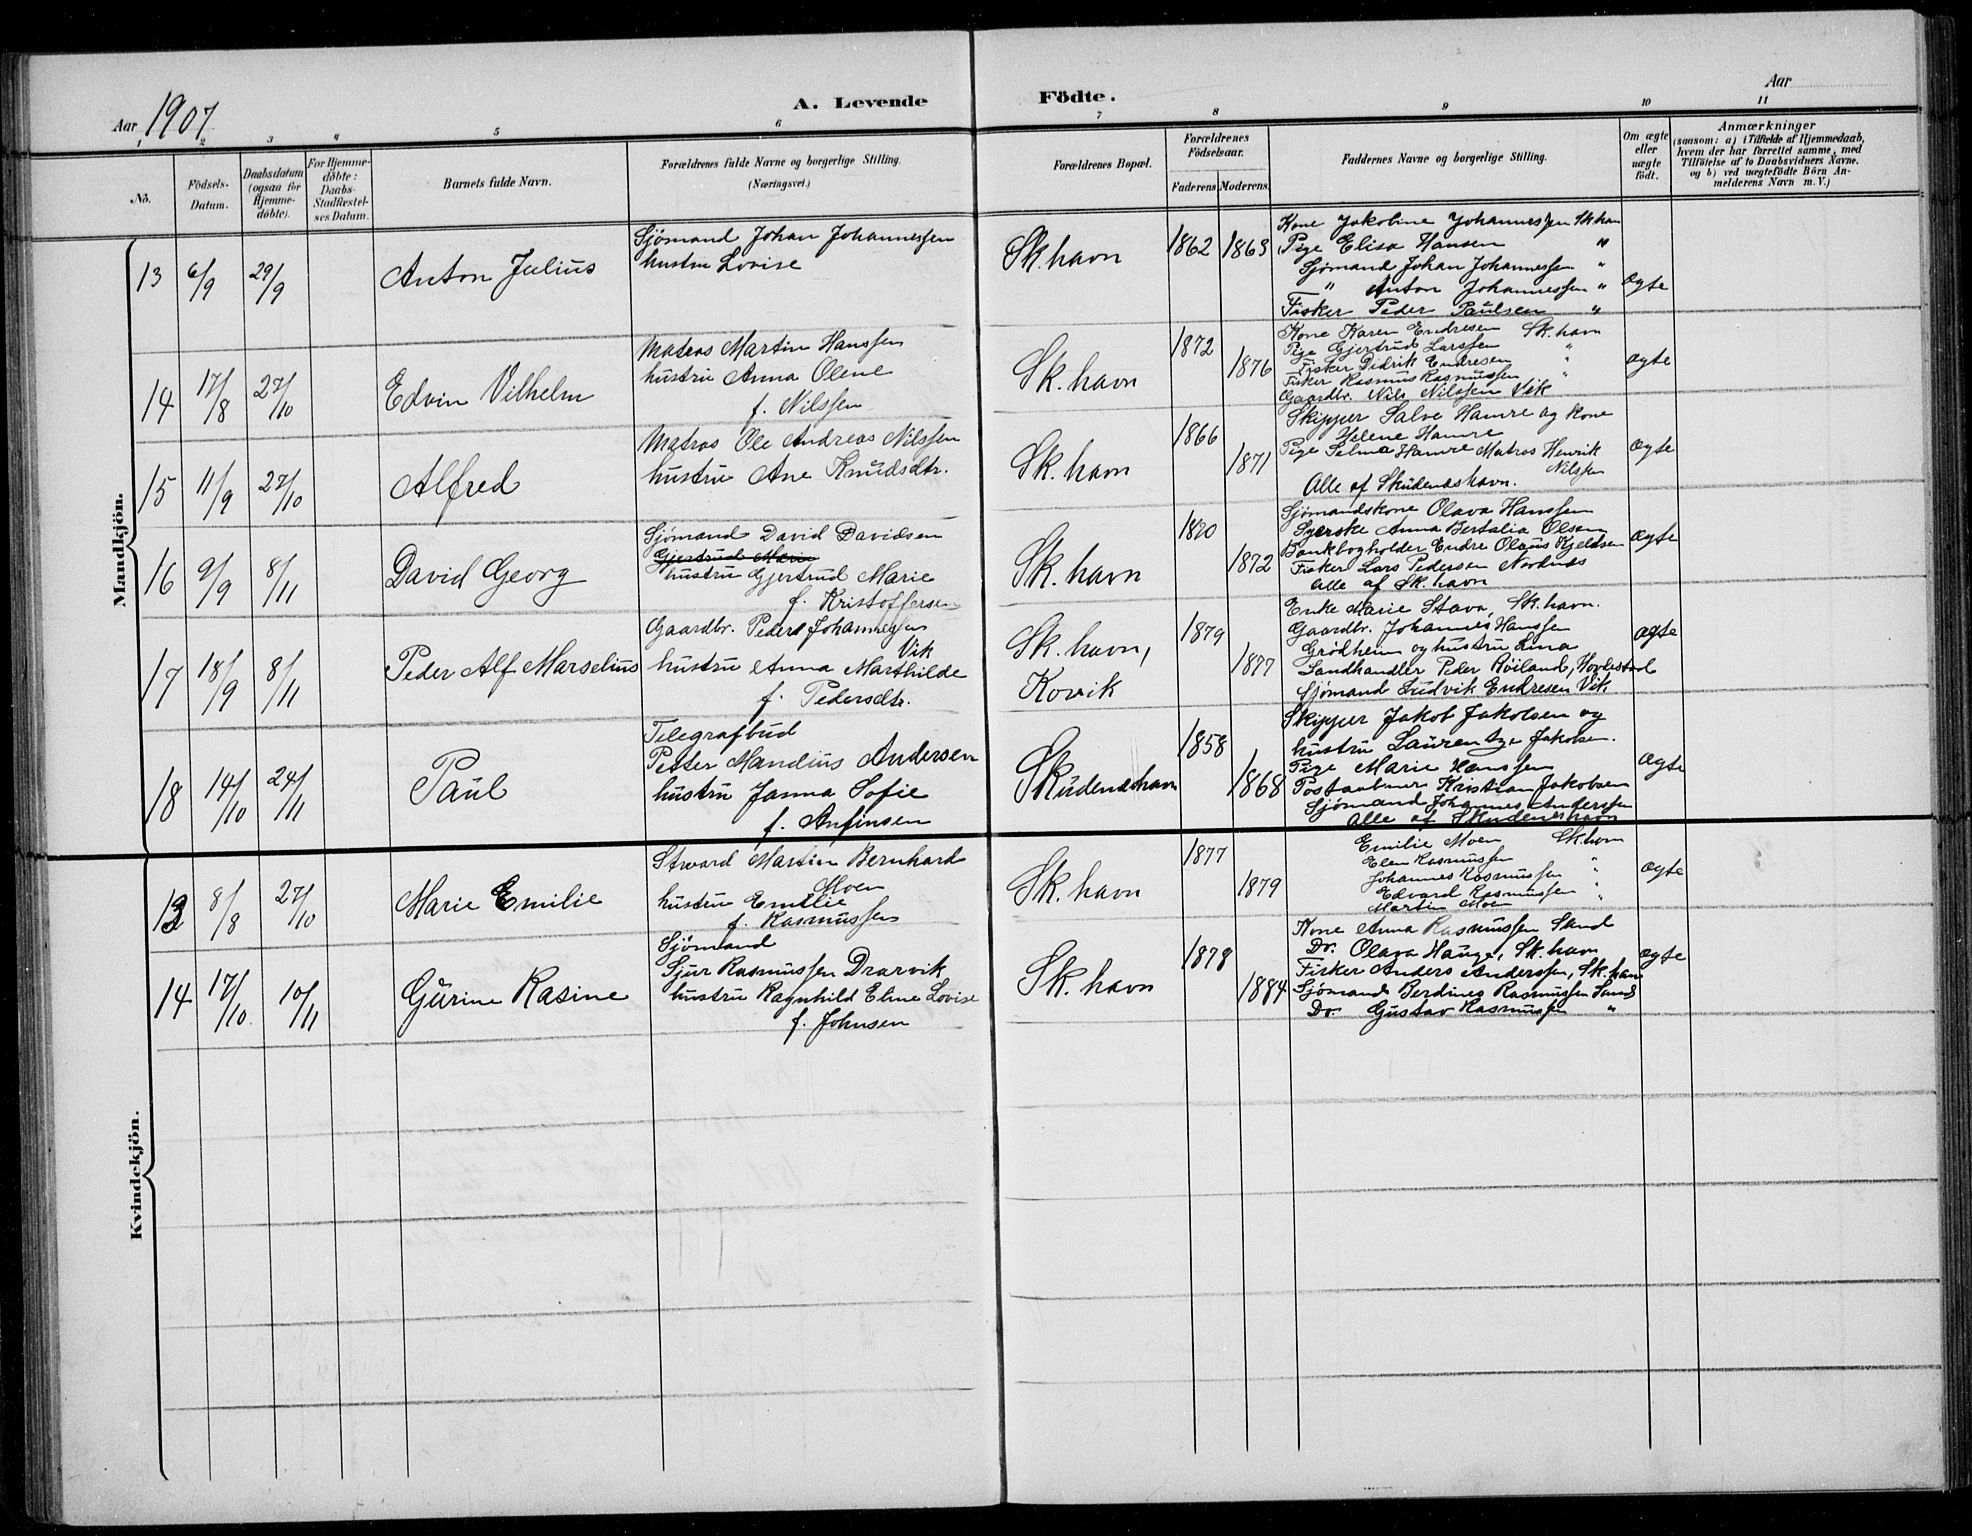 Aar 1907
A. Levende Födte.
Aar
1 2 3 4 5 6 7 8 9 10 11
No.
Födsels-Datum.
Daabsdatum (ogsaa for Hjemme-döbte).
For Hjemme-döbte: Daabs-Stadfæstel-ses Datum.
Barnets fulde Navn.
Forældrenes fulde Navne og borgerlige Stilling.
(Næringsvei.)
Forældrenes Bopæl.
Forældrenes Födselsaar.
Faderens. Moderens.
Faddernes Navne og borgerlige Stilling.
Om ægte eller uægte födt.
Anmærkninger
(saasom: a) i Tilfælde af Hjemmedaab,
hvem der har forrettet samme, med
Tilföielse af to Daabsvidners Navne.
og b) ved uægtefödte Börn An-
melderens Navn m. V.)
Mandkjön.
13 6/9 29/9 Anton Julius
Sjömand Johan Johannessen
hustru Lovise
Sk.havn 1862 1863
Kone Jakobine Johannessen Sk.havn
Pige Elisa Hansen "
Sjömand Johan Johannessen "
" Anton Johannessen "
Fisker Peder Paulsen "
ægte
14 17/8 27/10 Edvin Vilhelm
Matros Martin Hanssen
hustru Anna Olene
f. Nilssen
Sk.havn 1872 1876
Kone Karen Endresen Sk.havn
Pige Gjertrud Larssen "
Fisker Didrik Endresen "
Fisker Rasmus Rasmussen "
Gaardbr. Nils Nilssen Vik
ægte
15 11/9 27/10 Alfred
Matros Ole Andreas Nilssen
hustru Ane Knudsdtr.
Sk.havn 1866 1871
Skipper Salve Hamre og Kone
Helene Hamre
Pige Selma Hamre Matros Henrik
Nilssen
Alle af Skudeneshavn.
ægte
16 9/9 8/11 David Georg
Sjömand David Davidsen
Gjertrud Marie
hustru Gjertrud Marie
f. Kristoffersen
Sk.havn 1870 1872
Sjömandskone Olava Hanssen
Syerske Anna Bertalia Olsen
Bankbogholder Endre Olaus Kjeldsen
Fisker Lars Pedersen Nordnes
Alle af Sk.havn
ægte
17 18/9 8/11 Peder Alf Marselius
Gaardbr. Peder Johannessen
Vik
hustru Anna Marthilde
f. Pedersdtr.
Sk.havn,
Kovik
1879 1877
Enke Marie Stava, Sk.havn.
Gaardbr. Johannes Hanssen
Grödheim og hustru Lina
Landhandler Peder Röiland, Hovlestad
Sjömand Ludvik Endresen Vik
ægte
18 14/10 24/11 Paul
Telegrafbud
Petter Mandius Andersen
hustru Janna Sofie
f. Anfinsen
Skudeneshavn 1858 1868
Skipper Jakob Jakobsen og
hustru Laurentze Jakobsen.
Pige Marie Hanssen
Postaabner Kristian Jakobsen
Sjömand Johannes Anderssen
Alle af Skudeneshavn
ægte
Kvindekjön.
13 8/8 27/10 Marie Emilie
Stward Martin Bernhard
Moen
hustru Emilie
f. Rasmussen
Sk.havn 1877 1879
Emilie Moen Sk.havn
Elen Rasmussen "
Johannes Rasmussen "
Edvard Rasmussen "
Martin Moen "
ægte
14 17/10 10/11 Gurine Rasine
Sjömand
Sjur Rasmussen Drarvik
hustru Ragnhild Eline Lovise
f. Johnsen
Sk.havn 1878 1884
Kone Anna Rasmussen Sand
Do. Olava Hauge, Sk.havn
Fisker Anders Anderssen, Sk.havn
Sjömand Berdines Rasmussen Sand
Do. Gustav Rasmussen "
ægte